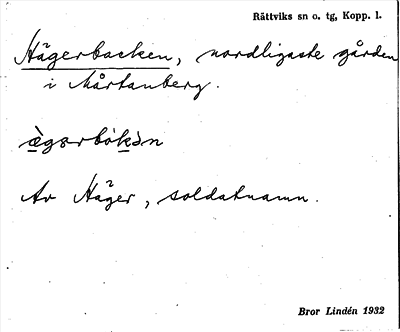 Rättviks sn o. tg, Kopp. l.
Hägerbacken, nordligaste gården
i Mårtanberg.
Av Häger, soldatnamn.
Bror Lindén 1932